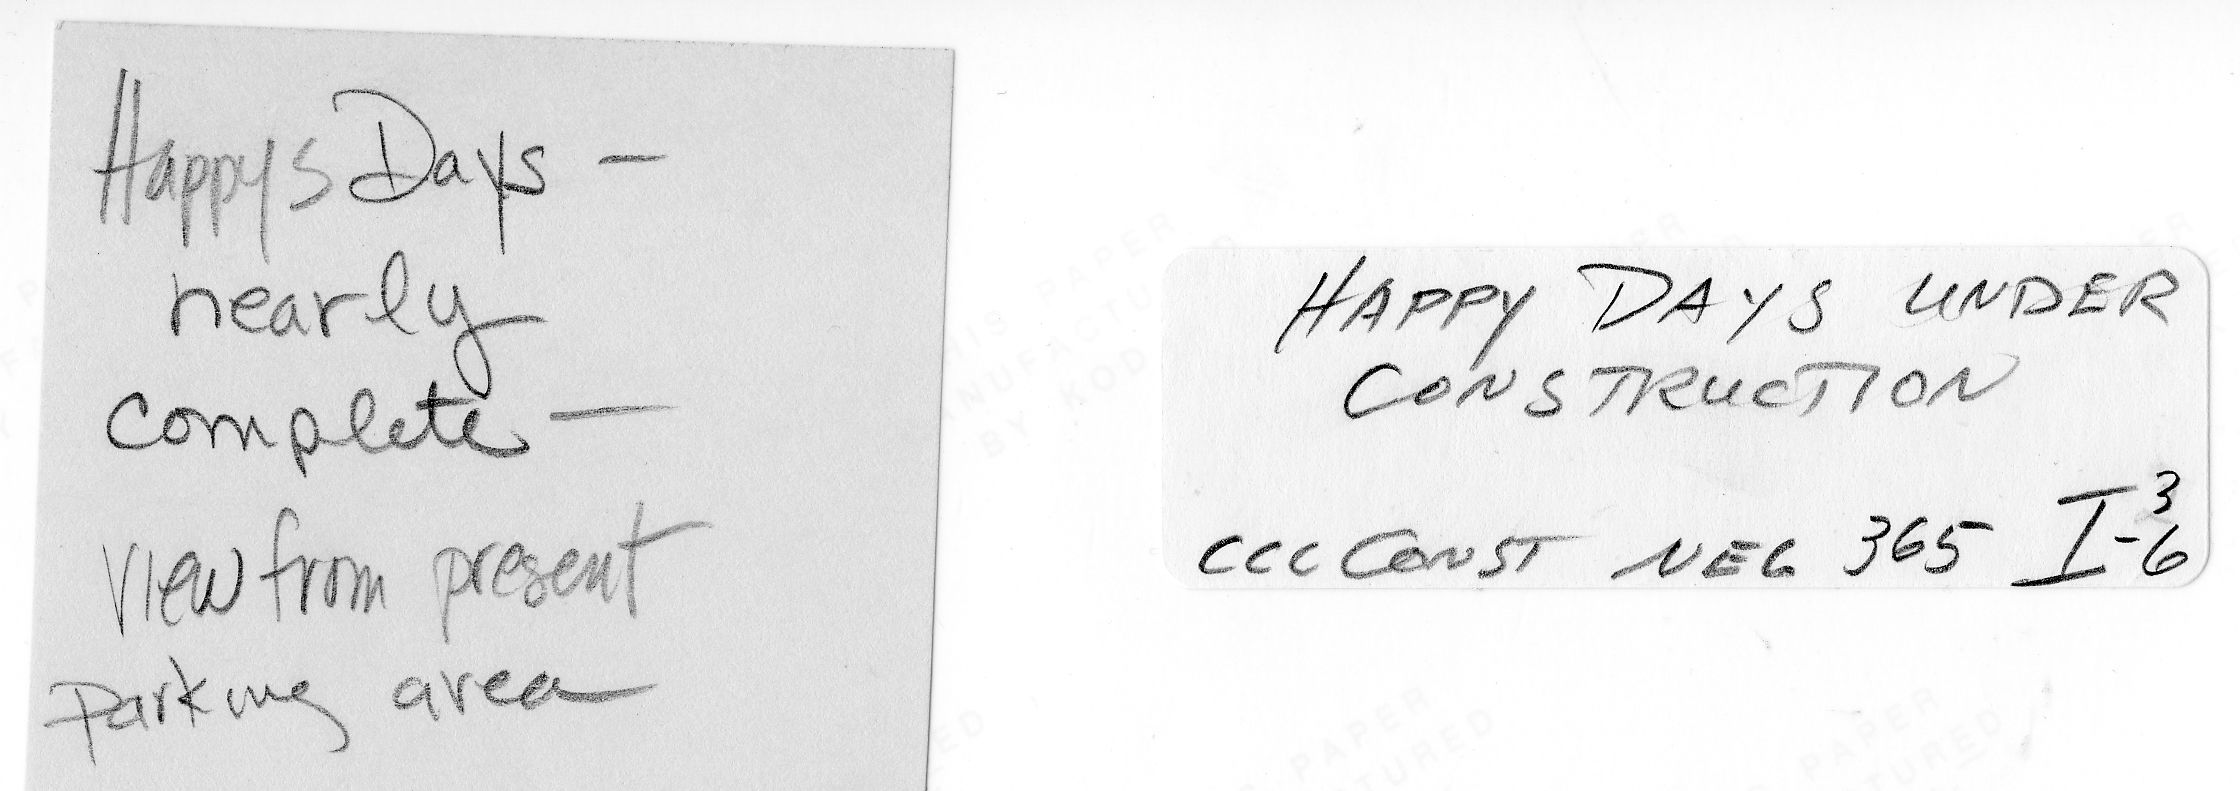 Happys Days —
nearly
complete —
view from present
parking area
HAPPY DAYS UNDER
CONSTRUCTION
CCC CONST NEG 365 I-3
6
THIS PAPER
MANUFACTURED
BY KODAK
PAPER